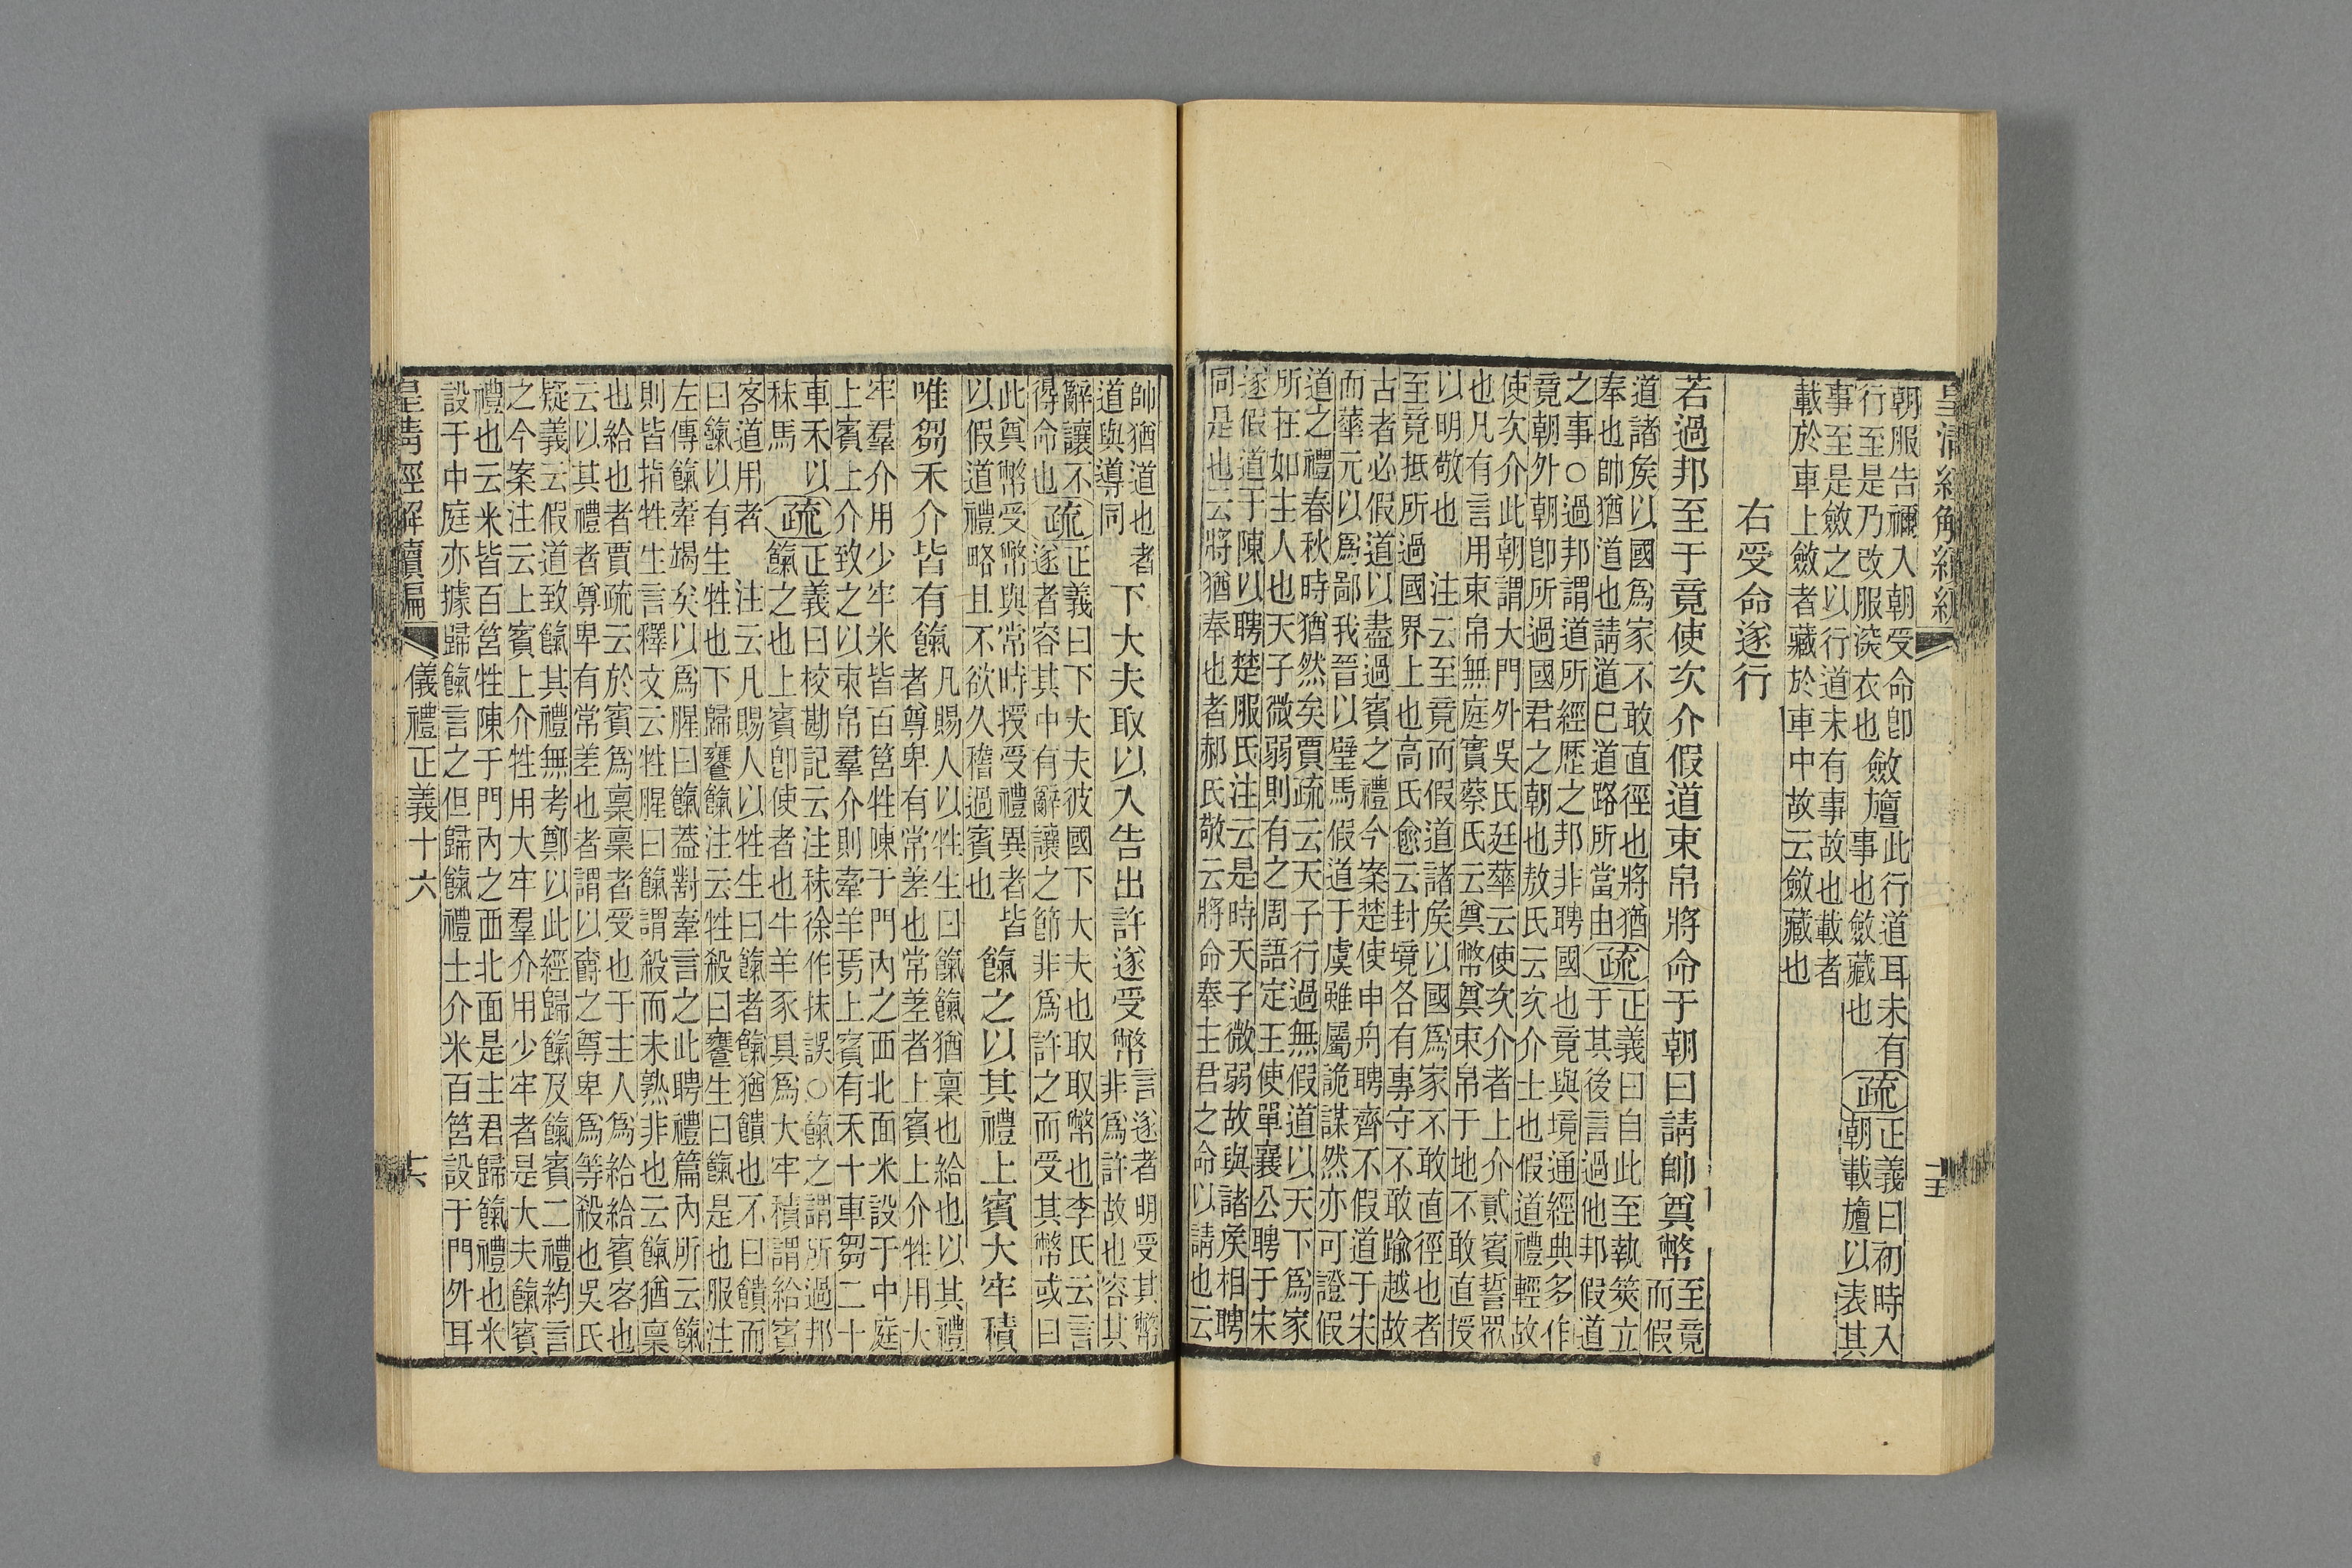 皇清經解續編
十五
朝服告禰入朝受命卽
行至是乃改服深衣也
斂旜
此行道耳未有
事也斂藏也
疏
正義曰初時入
朝載旜以表其
事至是斂之以行道未有事故也載者
載於車上斂者藏於車中故云斂藏也
右受命遂行
若過邦至于竟使次介假道束帛將命于朝曰請帥奠幣
至竟
而假
道諸矦以國爲家不敢直徑也將猶
奉也帥猶道也請道巳道路所當由
疏
正義曰自此至執筴立
于其後言過他邦假道
之事○過邦謂道所經歷之邦非聘國也竟與境通經典多作
竟朝外朝卽所過國君之朝也敖氏云次介士也假道禮輕故
使次介此朝謂大門外吳氏廷華云使次介者上介貳賓誓眾
也凡有言用束帛無庭實蔡氏云奠幣奠束帛于地不敢直授
以明敬也　注云至竟而假道諸矦以國爲家不敢直徑也者
至竟抵所過國界上也高氏愈云封境各有專守不敢踰越故
古者必假道以盡過賓之禮今案楚使申舟聘齊不假道于宋
而華元以爲鄙我晉以璧馬假道于虞雖屬詭謀然亦可證假
道之禮春秋時猶然矣賈疏云天子行過無假道以天下爲家
所在如主人也天子微弱則有之周語定王使單襄公聘于宋
遂假道于陳以聘楚服氏注云是時天子微弱故與諸矦相聘
同是也云將猶奉也者郝氏敬云將命奉主君之命以請也云
帥猶道也者
道與導同
下大夫取以入告出許遂受幣
言遂者明受其幣
非爲許故也容其
辭讓不
得命也
疏
正義曰下大夫彼國下大夫也取取幣也李氏云言
遂者容其中有辭讓之節非爲許之而受其幣或曰
此奠幣受幣與常時授受禮異者皆
以假道禮略且不欲久稽過賓也
餼之以其禮上賓大牢積
唯芻禾介皆有餼
凡賜人以牲生曰餼餼猶稟也給也以其禮
者尊卑有常差也常差者上賓上介牲用大
牢羣介用少牢米皆百筥牲陳于門內之西北面米設于中庭
上賓上介致之以束帛羣介則牽羊焉上賓有禾十車芻二十
車禾以
秣馬
疏
正義曰校勘記云注秣徐作抹誤○餼之謂所過邦
餼之也上賓卽使者也牛羊豕具爲大牢積謂給賓
客道用者　注云凡賜人以牲生曰餼者餼猶饋也不曰饋而
曰餼以有生牲也下歸饔餼注云牲殺曰饔生曰餼是也服注
左傳餼牽竭矣以爲腥曰餼葢對牽言之此聘禮篇內所云餼
則皆指牲生言釋文云牲腥曰餼謂殺而未熟非也云餼猶稟
也給也者賈疏云於賓爲稟稟者受也于主人爲給給賓客也
云以其禮者尊卑有常差也者謂以爵之尊卑爲等殺也吳氏
疑義云假道致餼其禮無考鄭以此經歸餼及餼賓二禮約言
之今案注云上賓上介牲用大牢羣介用少牢者是大夫餼賓
禮也云米皆百筥牲陳于門內之西北面是主君歸餼禮也米
設于中庭亦據歸餼言之但歸餼禮士介米百筥設于門外耳
皇清經解續編
儀禮正義十六
十六